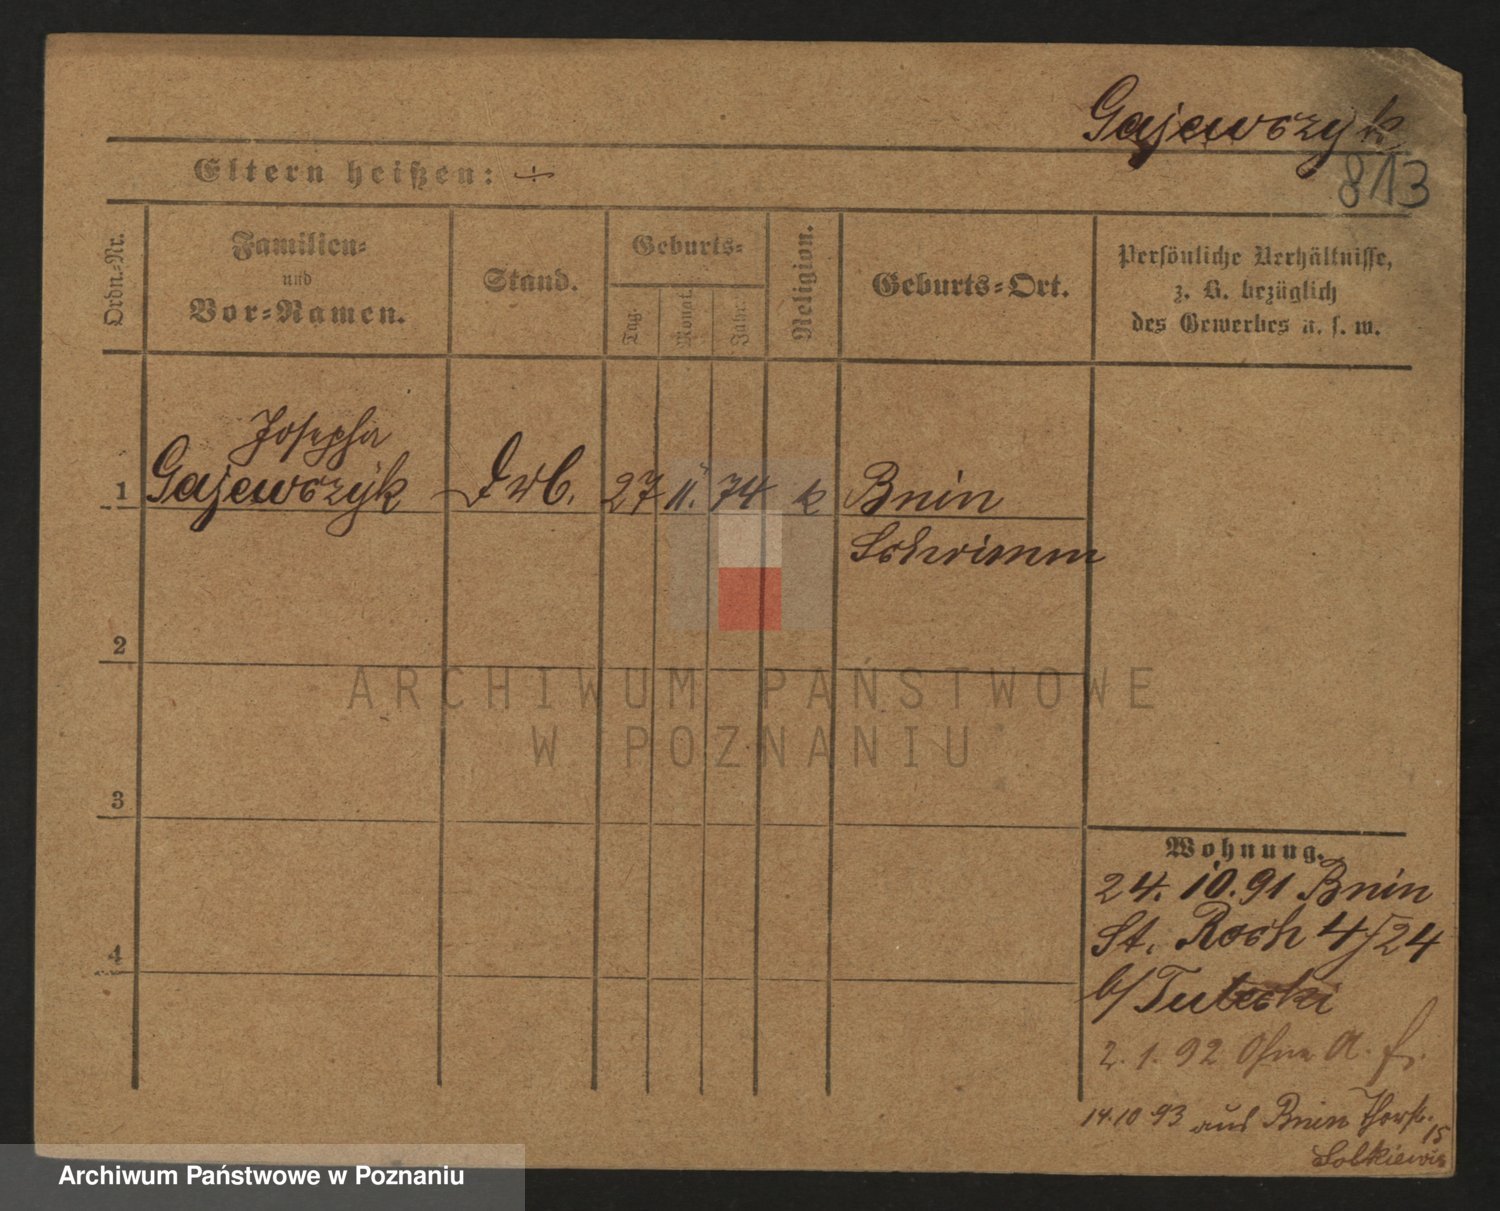 Gajewczyk
813
Eltern heißen: +
Ordn.-Nr.
Familien-
und
Vor-Namen.
Stand.
Geburts-
Tag.
Monat.
Jahr.
Religion.
Geburts-Ort.
Persönliche Verhältnisse,
z. B. bezüglich
des Gewerbes u. s. w.
Josepha
1 Gajewczyk 27 11. 74 k Bnin
Schrimm
2
3
4
Wohnung.
24. 10. 91 Bnin
St. Roch 4/24
b/
2. 1. 92 Ohne A.
14.10 93 aus Bnin
15
ARCHIWUM PAŃSTWOWE
W POZNANIU
Archiwum Państwowe w Poznaniu